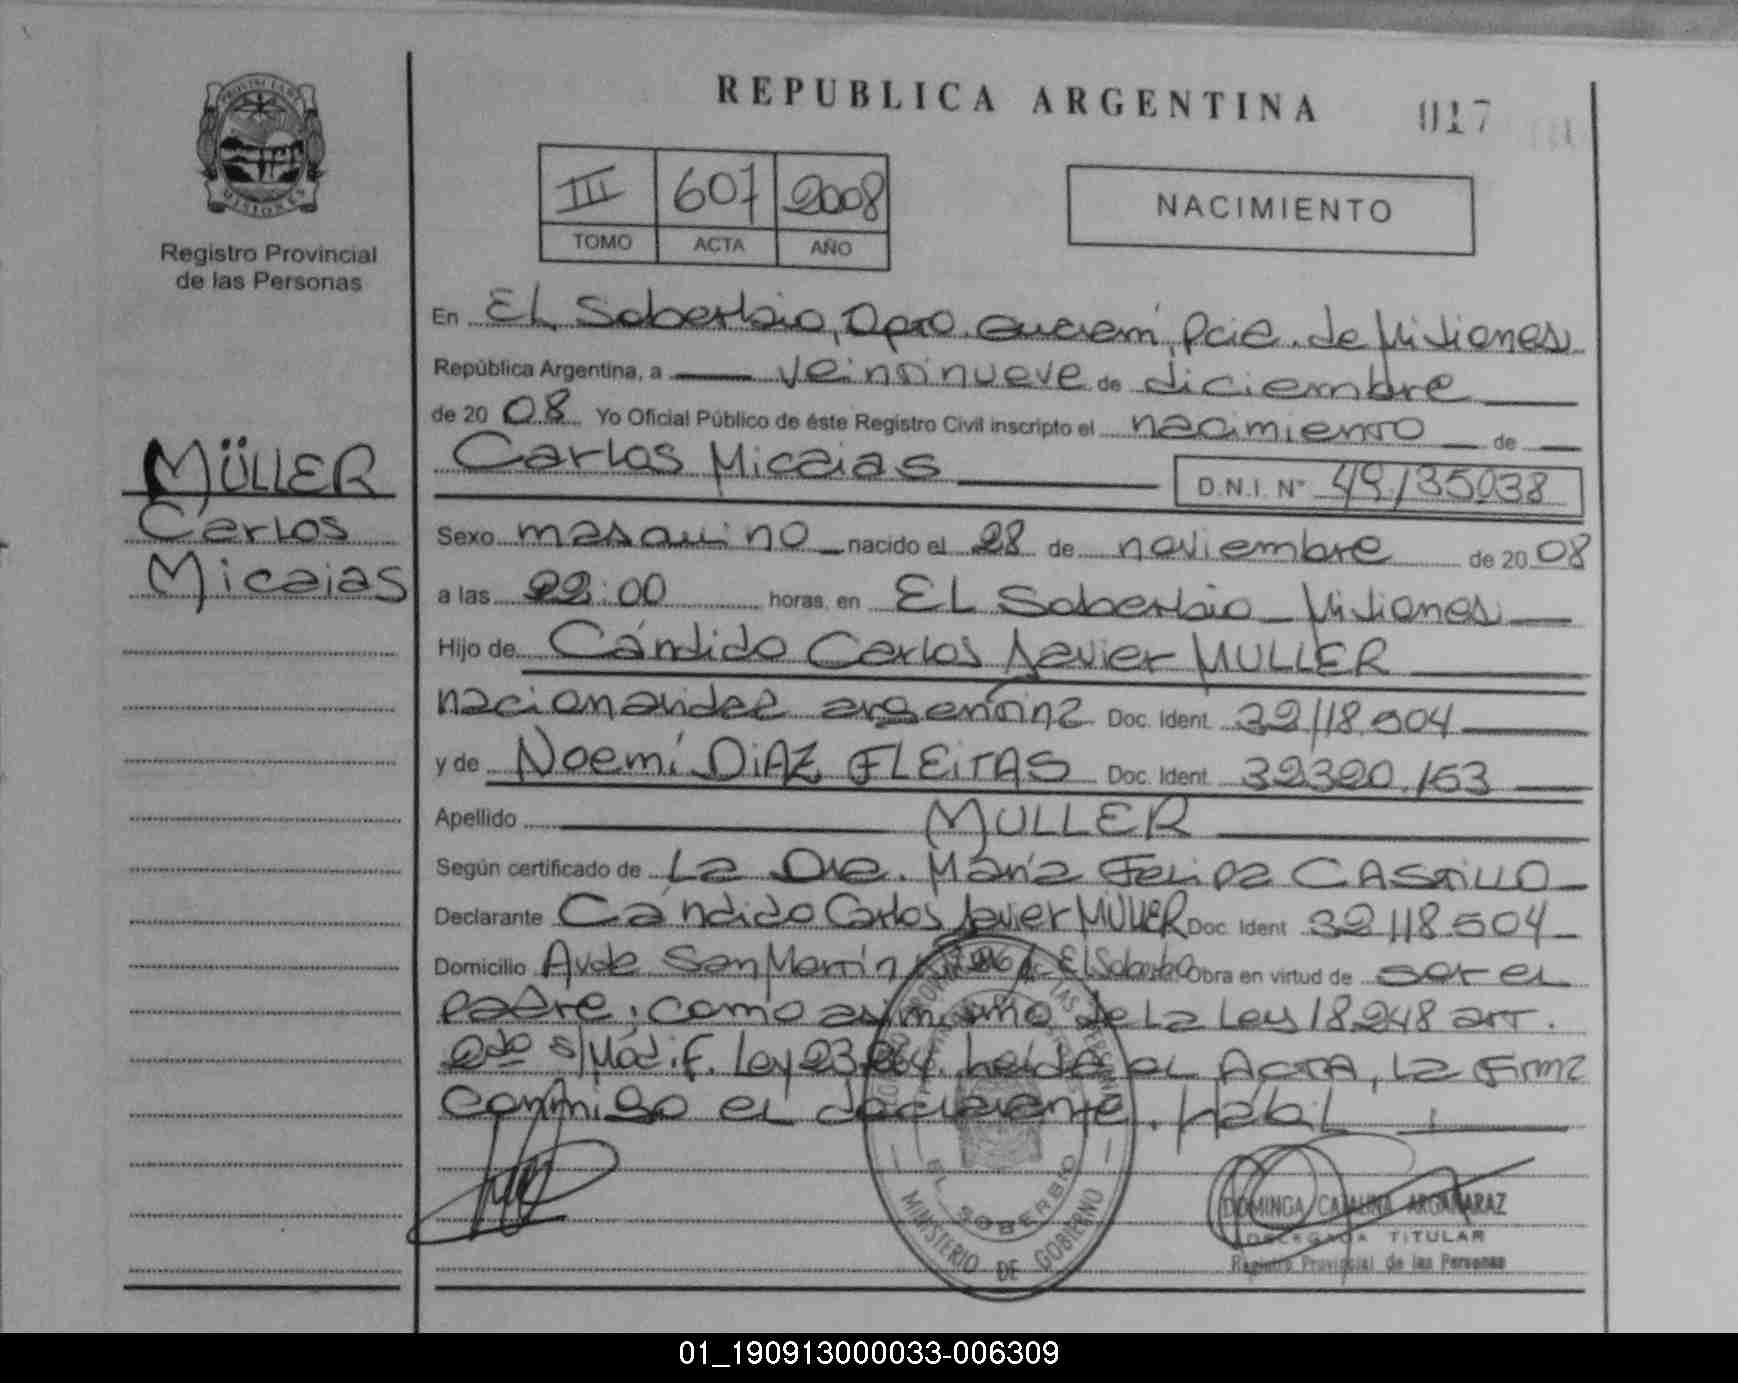 REPUBLICA ARGENTINA
017
PROVINCIA DE
MISIONES
Registro Provincial
de las Personas
III 607 2008
TOMO ACTA AÑO
NACIMIENTO
MÜLLER
Carlos
Micaias
En El Soberbio, Dpto. Guaraní, Pcia. de Misiones
República Argentina, a veintinueve de diciembre
de 2008 Yo Oficial Público de éste Registro Civil inscripto el nacimiento de
Carlos Micaias D.N.I. N° 49.135038
Sexo masculino nacido el 28 de noviembre de 2008
a las 22:00 horas, en El Soberbio Misiones
Hijo de Cándido Carlos Javier MULLER
nacionalidad argentina Doc. Ident. 32118.504
y de Noemí DIAZ FLEITAS Doc. Ident. 32320.153
Apellido MULLER
Según certificado de La Dra. María Felipa CASTILLO
Declarante Cándido Carlos Javier MULLER Doc. Ident 32118.504
Domicilio Avda San Martín El Soberbio Obra en virtud de ser el
padre, como asimismo de la Ley 18.248 art.
2do s/Modif. Ley 23.264. Leída el ACTA, la firma
conmigo el declarante. Hábil
EL SOBERBIO
MINISTERIO DE GOBIERNO
DOMINGA CATALINA ARGAÑARAZ
DELEGADA TITULAR
Registro Provincial de las Personas
01_190913000033-006309